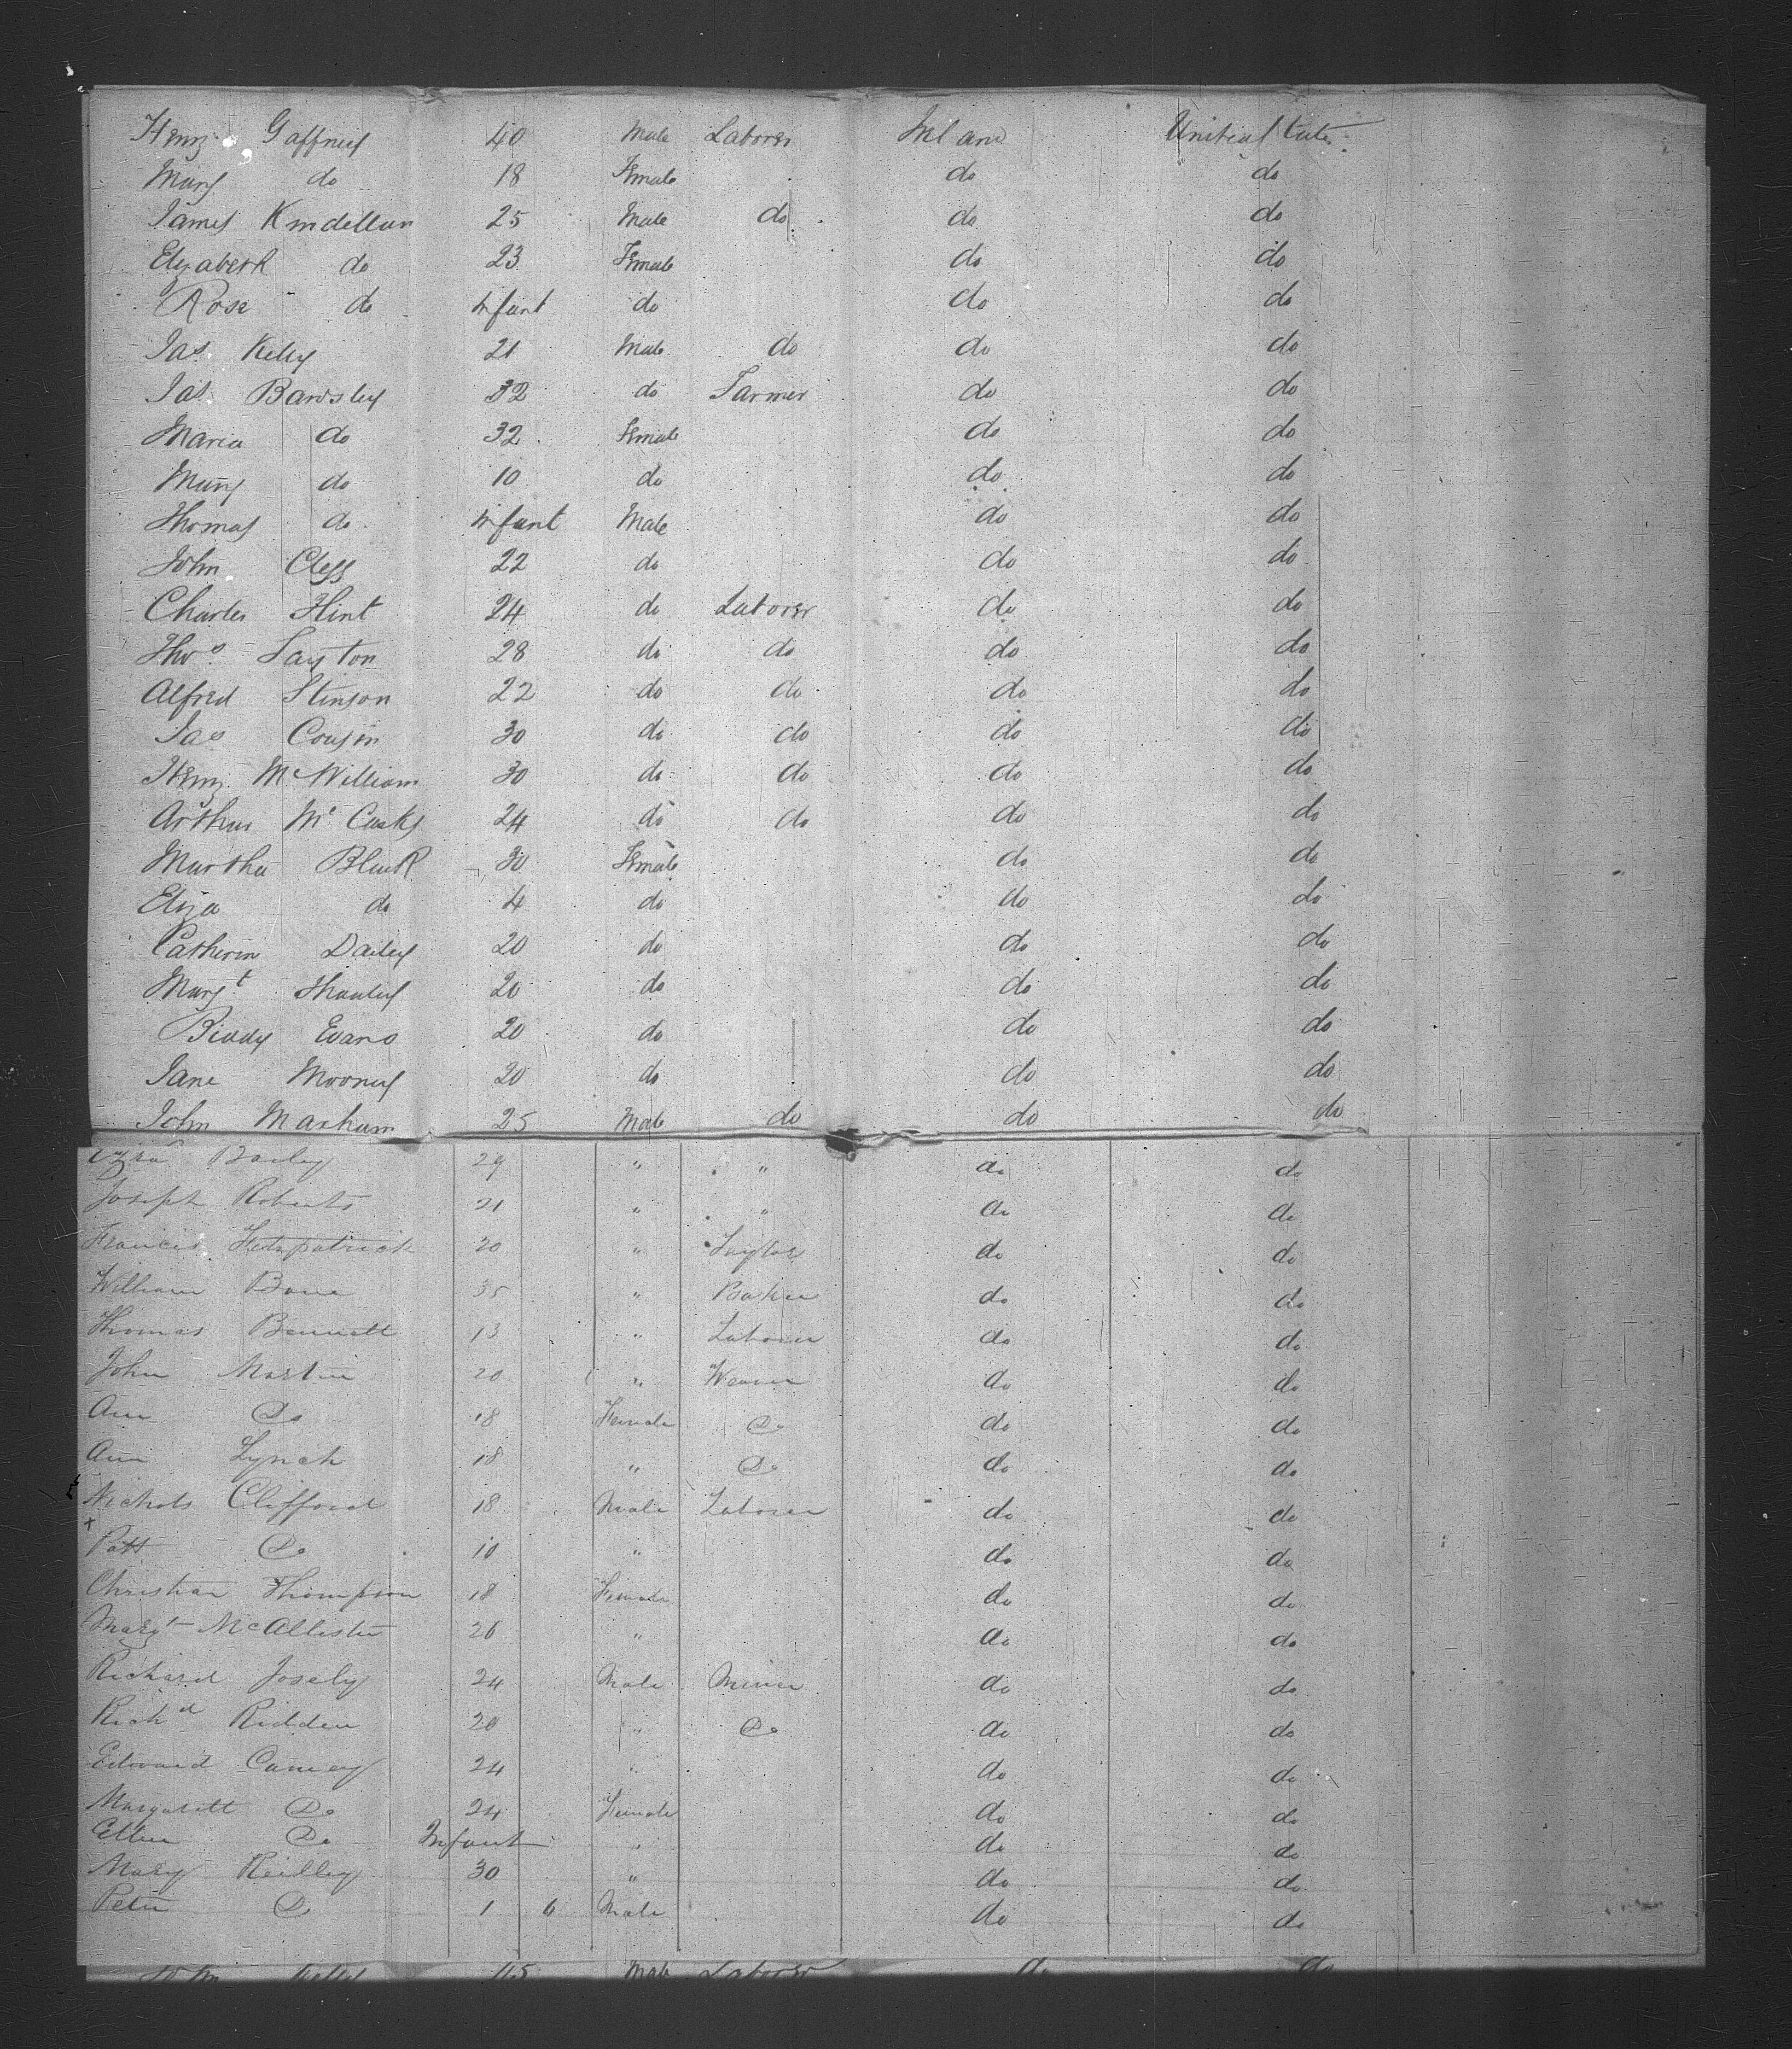 Henry Gaffney 40 Male Laborer Ireland United States
Mary do 18 Female do do
James Kindellan 25 Male do do do
Elizabeth do 23 Female do do
Rose do Infant do do do
Jas Kelly 21 Male do do do
Jas Bardsley 32 do Farmer do do
Maria do 32 Female do do
Mary do 10 do do do
Thomas do Infant Male do do
John Cless 22 do do do
Charles Flint 24 do Laborer do do
Thos Layton 28 do do do do
Alfred Stinson 22 do do do do
Jas Cousin 30 do do do do
Henry McWilliam 30 do do do do
Arthur Mc 24 do do do do
Martha Black 30 Female do do
Eliza do 4 do do do
Catherin Dailey 20 do do do
Margt 20 do do do
Biddy Evans 20 do do do
Jane Mooney 20 do do do
John Markum 25 Male do do do
Ezra Bailey 29 " " do do
Joseph Roberts 21 " " do do
Francis Fitzpatrick 20 " Taylor do do
William Bone 35 " Baker do do
Thomas Bennett 13 " Laborer do do
John Martin 20 " Weaver do do
Ann Do 18 Female Do do do
Ann Lynch 18 " Do do do
Nichols Clifford 18 Male Laborer do do
Patt Do 10 " do do
Christian Thompson 18 Female do do
Margt McAllister 26 " do do
Richard Josely 24 Male Miner do do
Richd Ridden 20 " Do do do
Edward 24 " do do
Margarett Do 24 Female do do
Ellen Do Infant " do do
Mary Reilley 30 " do do
Peter Do 1 6 Male do do
John Male Laborer do do